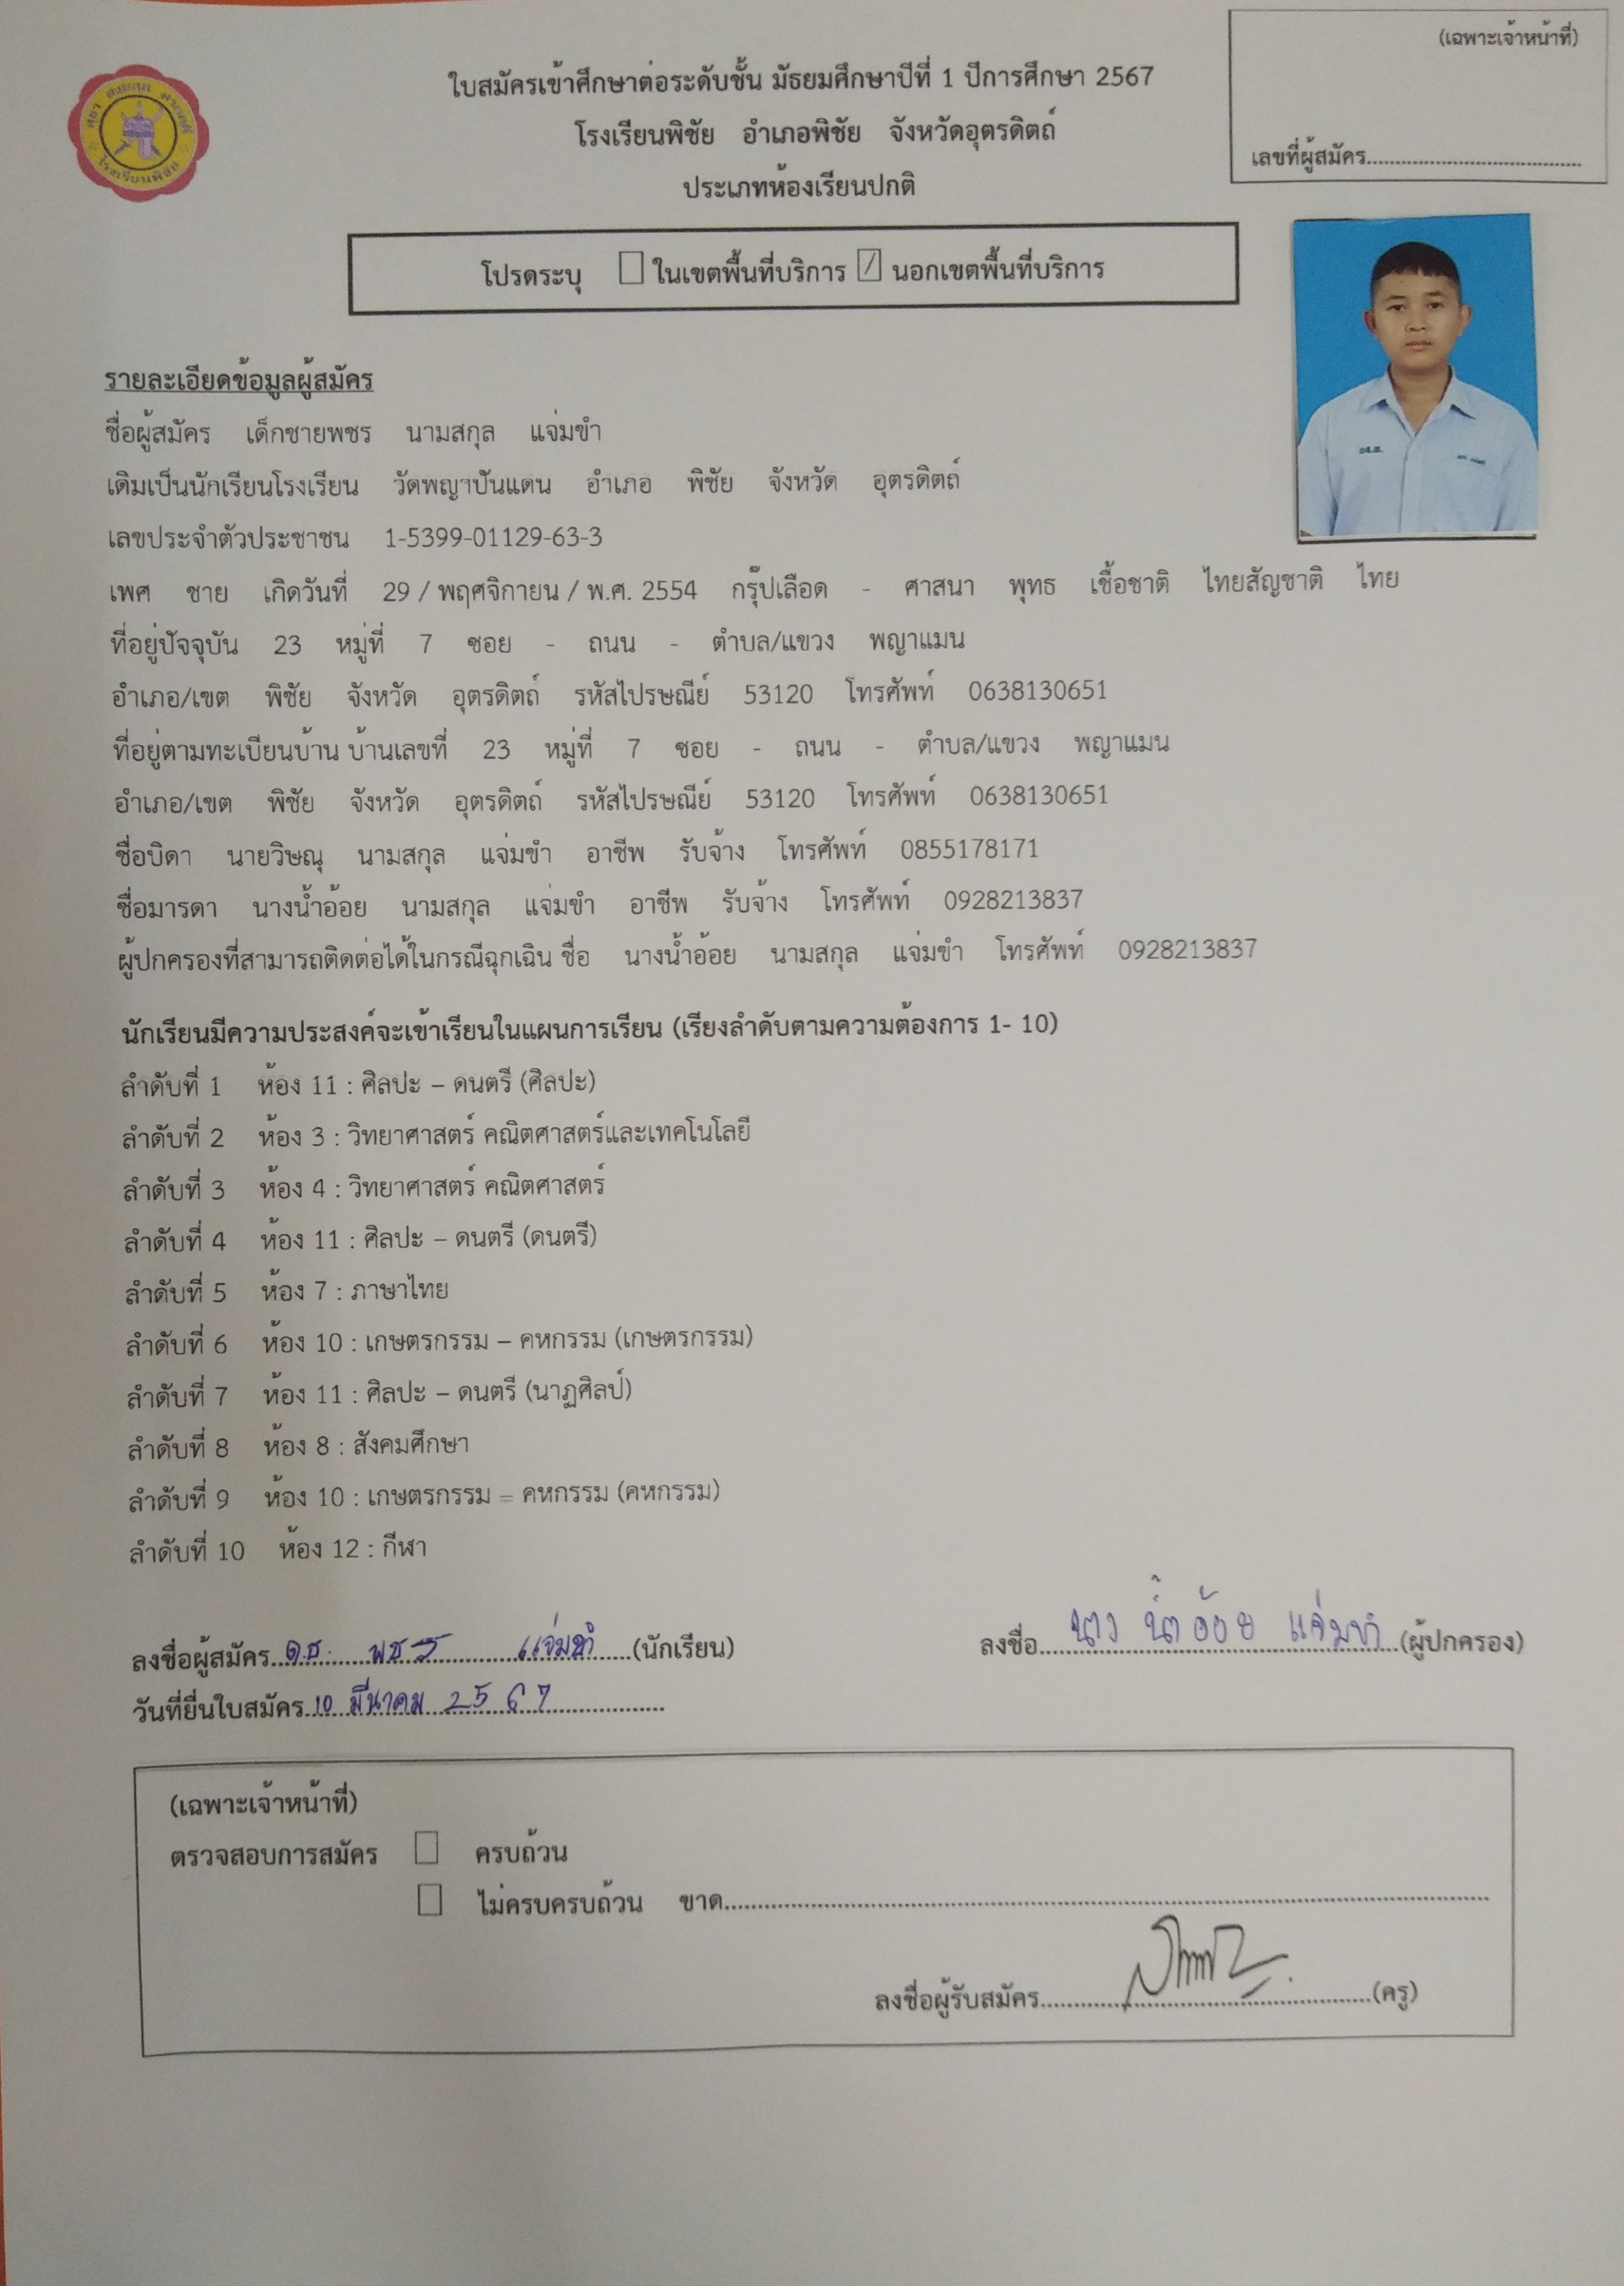 (เฉพาะเจ้าหน้าที่)
เลขที่ผู้สมัคร................................
ใบสมัครเข้าศึกษาต่อระดับชั้น มัธยมศึกษาปีที่ 1 ปีการศึกษา 2567
โรงเรียนพิชัย อำเภอพิชัย จังหวัดอุตรดิตถ์
ประเภทห้องเรียนปกติ
โรงเรียนพิชัย
โปรดระบุ ☐ ในเขตพื้นที่บริการ ☑ นอกเขตพื้นที่บริการ
รายละเอียดข้อมูลผู้สมัคร
ชื่อผู้สมัคร เด็กชายพชร นามสกุล แจ่มขำ
เดิมเป็นนักเรียนโรงเรียน วัดพญาปันแดน อำเภอ พิชัย จังหวัด อุตรดิตถ์
เลขประจำตัวประชาชน 1-5399-01129-63-3
เพศ ชาย เกิดวันที่ 29 / พฤศจิกายน / พ.ศ. 2554 กรุ๊ปเลือด - ศาสนา พุทธ เชื้อชาติ ไทยสัญชาติ ไทย
ที่อยู่ปัจจุบัน 23 หมู่ที่ 7 ซอย - ถนน - ตำบล/แขวง พญาแมน
อำเภอ/เขต พิชัย จังหวัด อุตรดิตถ์ รหัสไปรษณีย์ 53120 โทรศัพท์ 0638130651
ที่อยู่ตามทะเบียนบ้าน บ้านเลขที่ 23 หมู่ที่ 7 ซอย - ถนน - ตำบล/แขวง พญาแมน
อำเภอ/เขต พิชัย จังหวัด อุตรดิตถ์ รหัสไปรษณีย์ 53120 โทรศัพท์ 0638130651
ชื่อบิดา นายวิษณุ นามสกุล แจ่มขำ อาชีพ รับจ้าง โทรศัพท์ 0855178171
ชื่อมารดา นางน้ำอ้อย นามสกุล แจ่มขำ อาชีพ รับจ้าง โทรศัพท์ 0928213837
ผู้ปกครองที่สามารถติดต่อได้ในกรณีฉุกเฉิน ชื่อ นางน้ำอ้อย นามสกุล แจ่มขำ โทรศัพท์ 0928213837
นักเรียนมีความประสงค์จะเข้าเรียนในแผนการเรียน (เรียงลำดับตามความต้องการ 1- 10)
ลำดับที่ 1 ห้อง 11 : ศิลปะ – ดนตรี (ศิลปะ)
ลำดับที่ 2 ห้อง 3 : วิทยาศาสตร์ คณิตศาสตร์และเทคโนโลยี
ลำดับที่ 3 ห้อง 4 : วิทยาศาสตร์ คณิตศาสตร์
ลำดับที่ 4 ห้อง 11 : ศิลปะ – ดนตรี (ดนตรี)
ลำดับที่ 5 ห้อง 7 : ภาษาไทย
ลำดับที่ 6 ห้อง 10 : เกษตรกรรม – คหกรรม (เกษตรกรรม)
ลำดับที่ 7 ห้อง 11 : ศิลปะ – ดนตรี (นาฏศิลป์)
ลำดับที่ 8 ห้อง 8 : สังคมศึกษา
ลำดับที่ 9 ห้อง 10 : เกษตรกรรม = คหกรรม (คหกรรม)
ลำดับที่ 10 ห้อง 12 : กีฬา
ลงชื่อผู้สมัคร ด.ช. พชร แจ่มขำ (นักเรียน) ลงชื่อ นาง น้ำอ้อย แจ่มขำ (ผู้ปกครอง)
วันที่ยื่นใบสมัคร 10 มีนาคม 2567
(เฉพาะเจ้าหน้าที่)
ตรวจสอบการสมัคร ☐ ครบถ้วน
☐ ไม่ครบครบถ้วน ขาด................................
ลงชื่อผู้รับสมัคร................................(ครู)